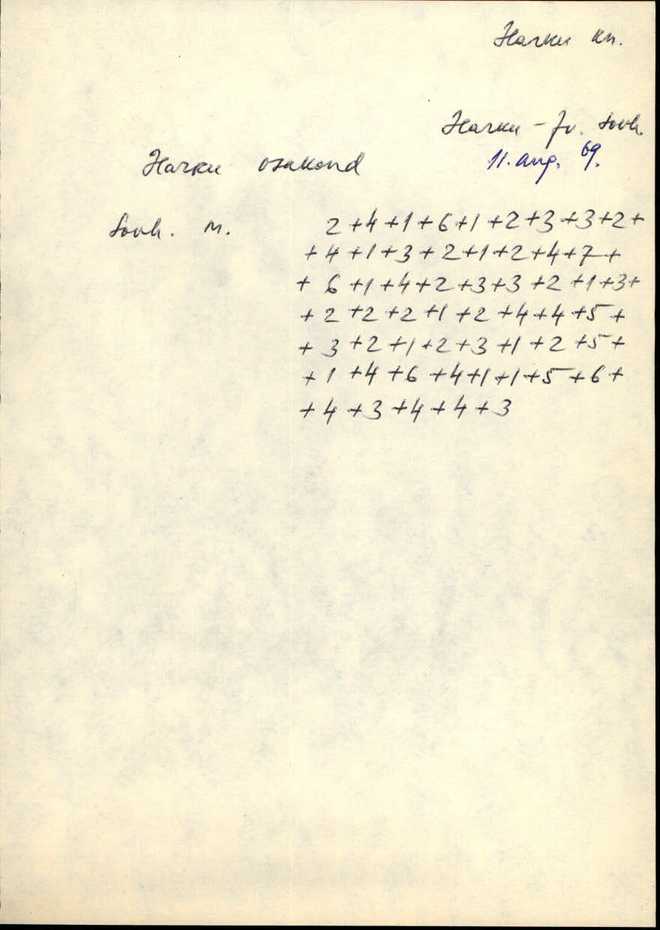 Harku kn.
Harku - Jv. sovh.
Harku osakond 11. aug. 69.
Sovh. m. 2+4+1+6+1+2+3+3+2+
+4+1+3+2+1+2+4+7+
+6+1+4+2+3+3+2+1+3+
+2+2+2+1+2+4+4+5+
+3+2+1+2+3+1+2+5+
+1+4+6+4+1+1+5+6+
+4+3+4+4+3